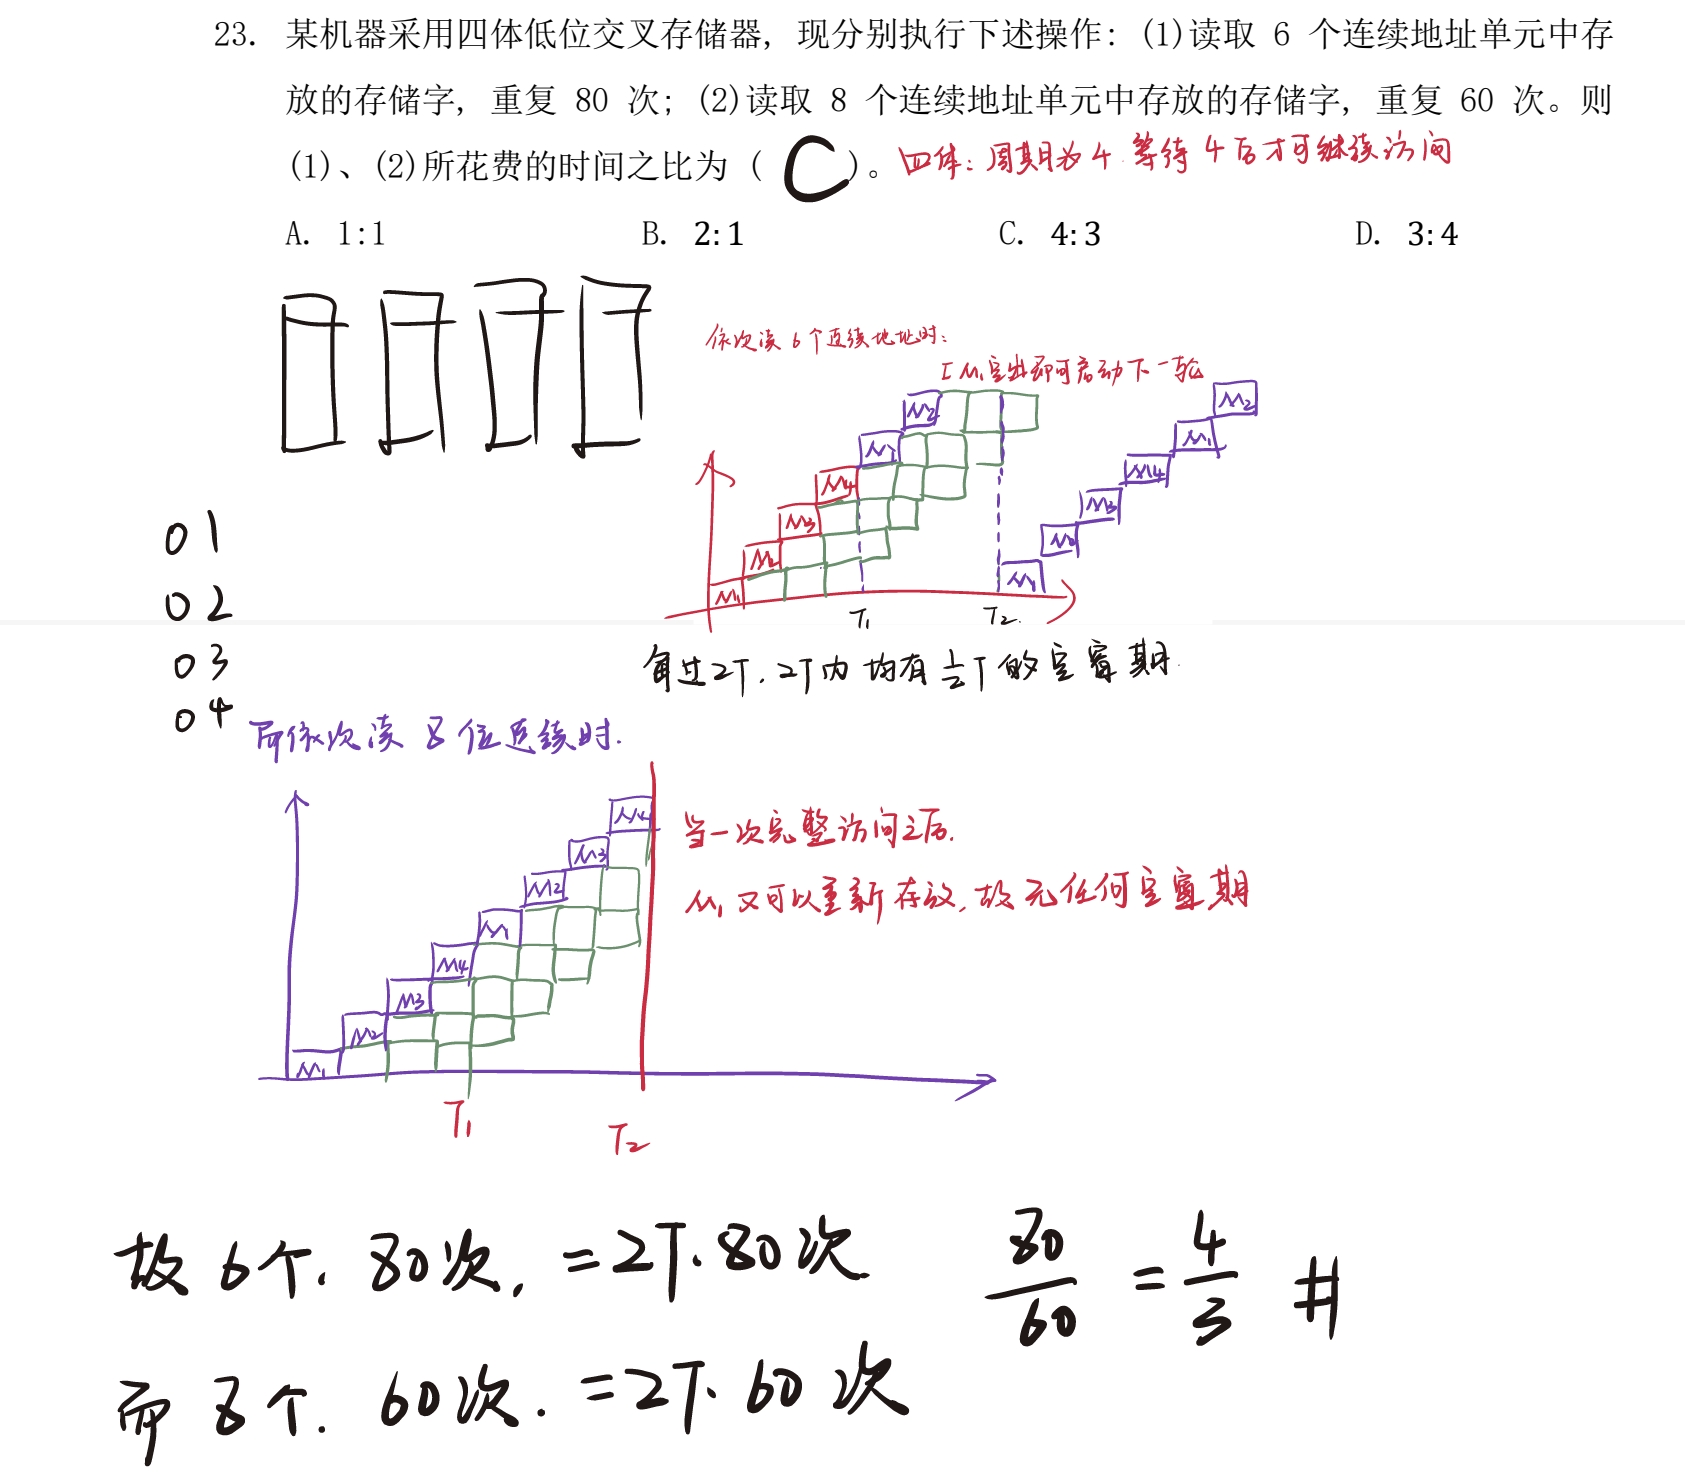 23. 某机器采用四体低位交叉存储器，现分别执行下述操作：(1)读取 6 个连续地址单元中存
放的存储字，重复 80 次；(2)读取 8 个连续地址单元中存放的存储字，重复 60 次。则
(1)、(2)所花费的时间之比为（ C ）。 四体：周期为4 等待4后才可继续访问
A. 1:1 B. 2:1 C. 4:3 D. 3:4
依次读6个连续地址时：
M1空出即可启动下一轮
M2 M2
M1 M1
M4 M4
M3 M3
M2 M2
M1 M1
T1 T2
01
02
03
04
每过2T，2T内均有½T的空窗期
而依次读8位连续时.
M4
M3
M2
M1
M4
M3
M2
M1
T1
T2
当一次完整访问之后.
M1又可以重新存放，故无任何空窗期
故6个. 80次, =2T·80次
80/60 = 4/3 #
而8个. 60次. =2T·60次